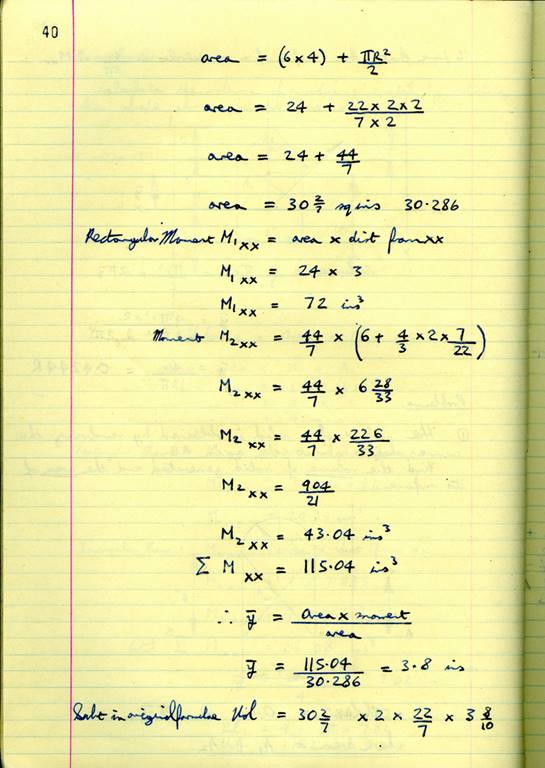 40
area = (6 x 4) + πR²/2
area = 24 + 22 x 2 x 2 / 7 x 2
area = 24 + 44/7
area = 30 2/7 sq ins 30.286
Rectangular Moment M₁xx = area x dist from xx
M₁xx = 24 x 3
M₁xx = 72 ins³
Moment M₂xx = 44/7 x (6 + 4/3 x 2 x 7/22)
M₂xx = 44/7 x 6 28/33
M₂xx = 44/7 x 226/33
M₂xx = 904/21
M₂xx = 43.04 ins³
Σ M xx = 115.04 ins³
∴ ȳ = area x moment / area
ȳ = 115.04 / 30.286 = 3.8 ins
Subt in original formulae Vol = 30 2/7 x 2 x 22/7 x 3 8/10